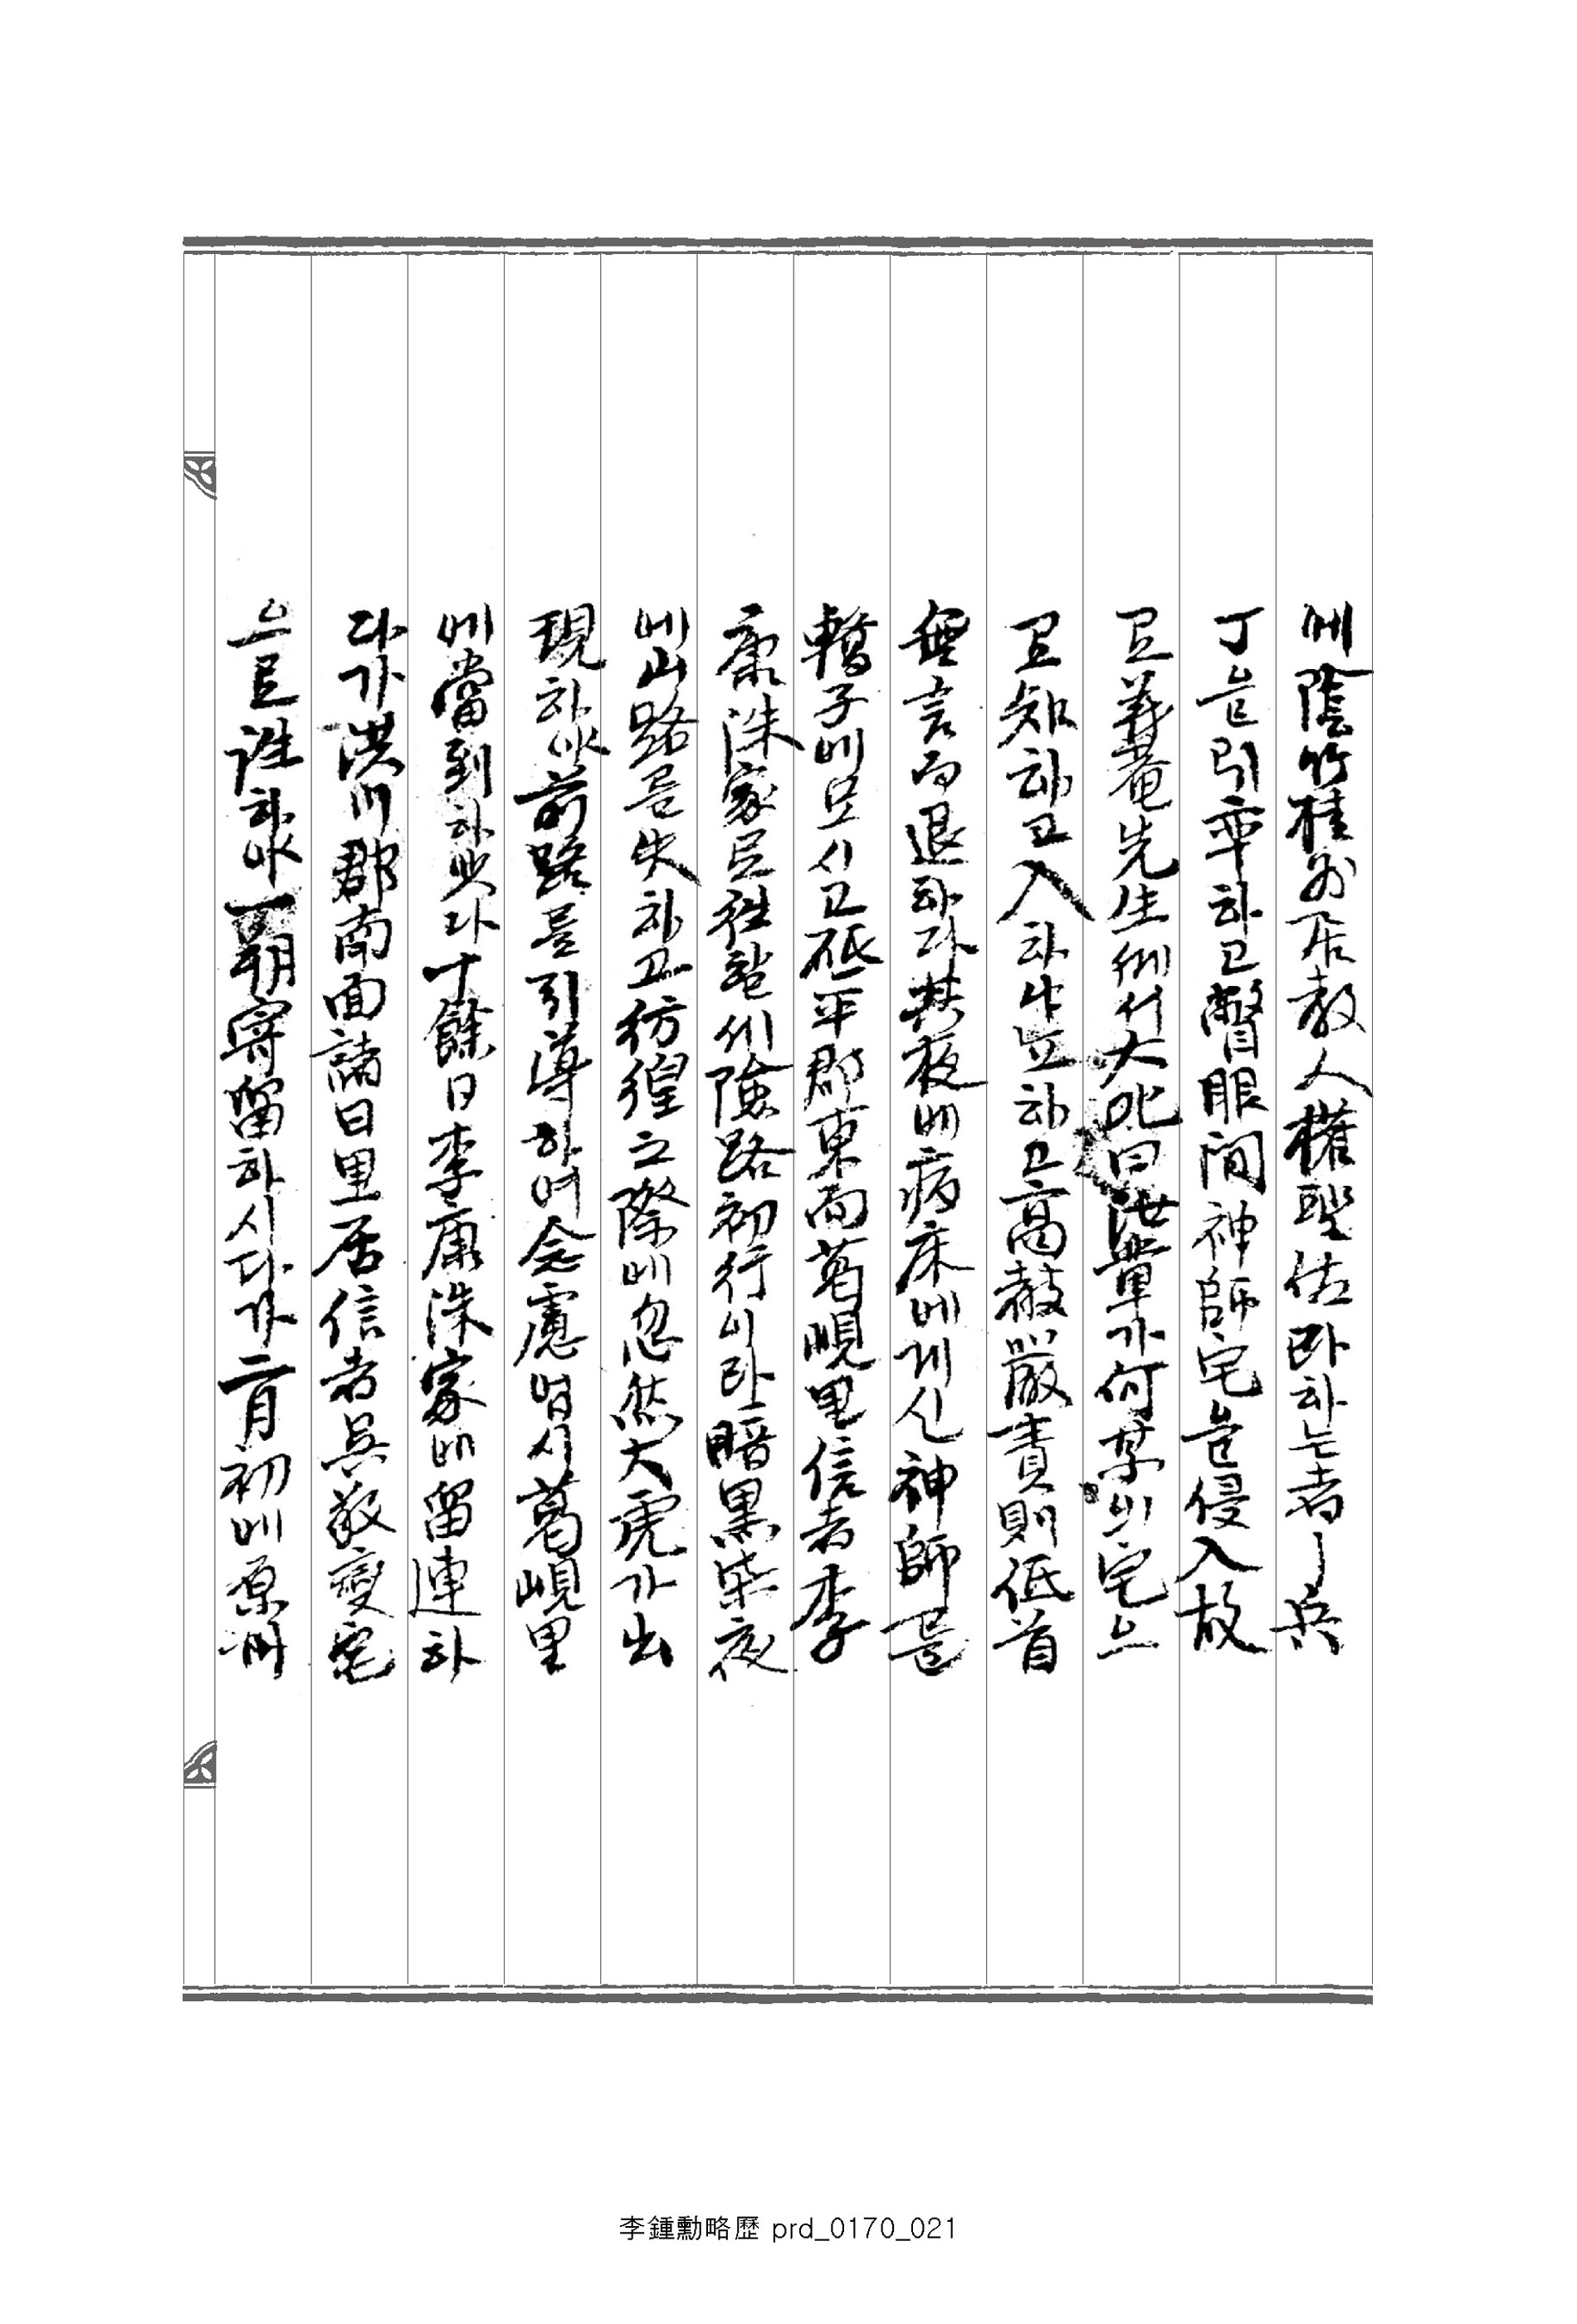 에 陰竹桂 居敎人權聖佐라 하는 者ㅣ 兵
丁을 引率하고 瞥眼間 神師宅을 侵入故
로 義菴先生께서 大叱曰 汝輩가 何某의 宅으
로 知하고 入하 하고 高聲嚴責則低首
無言而退하다 其夜에 病床에 게신 神師를
轎子에 모시고 砥平郡東面葛峴里信者李
康洙家로 往할 險路初行이라 暗黑柒夜
에 山路를 失하고 彷徨之際에 忽然大虎가 出
現하야 前路를 引導하여 念慮업시 葛峴里
에 當到하엿다 十餘日李康洙家에 留連하
다가 洪川郡南面諸日里居信者吳敬 宅
으로 往하야 一朔寄留하시다가 二月初에 原州